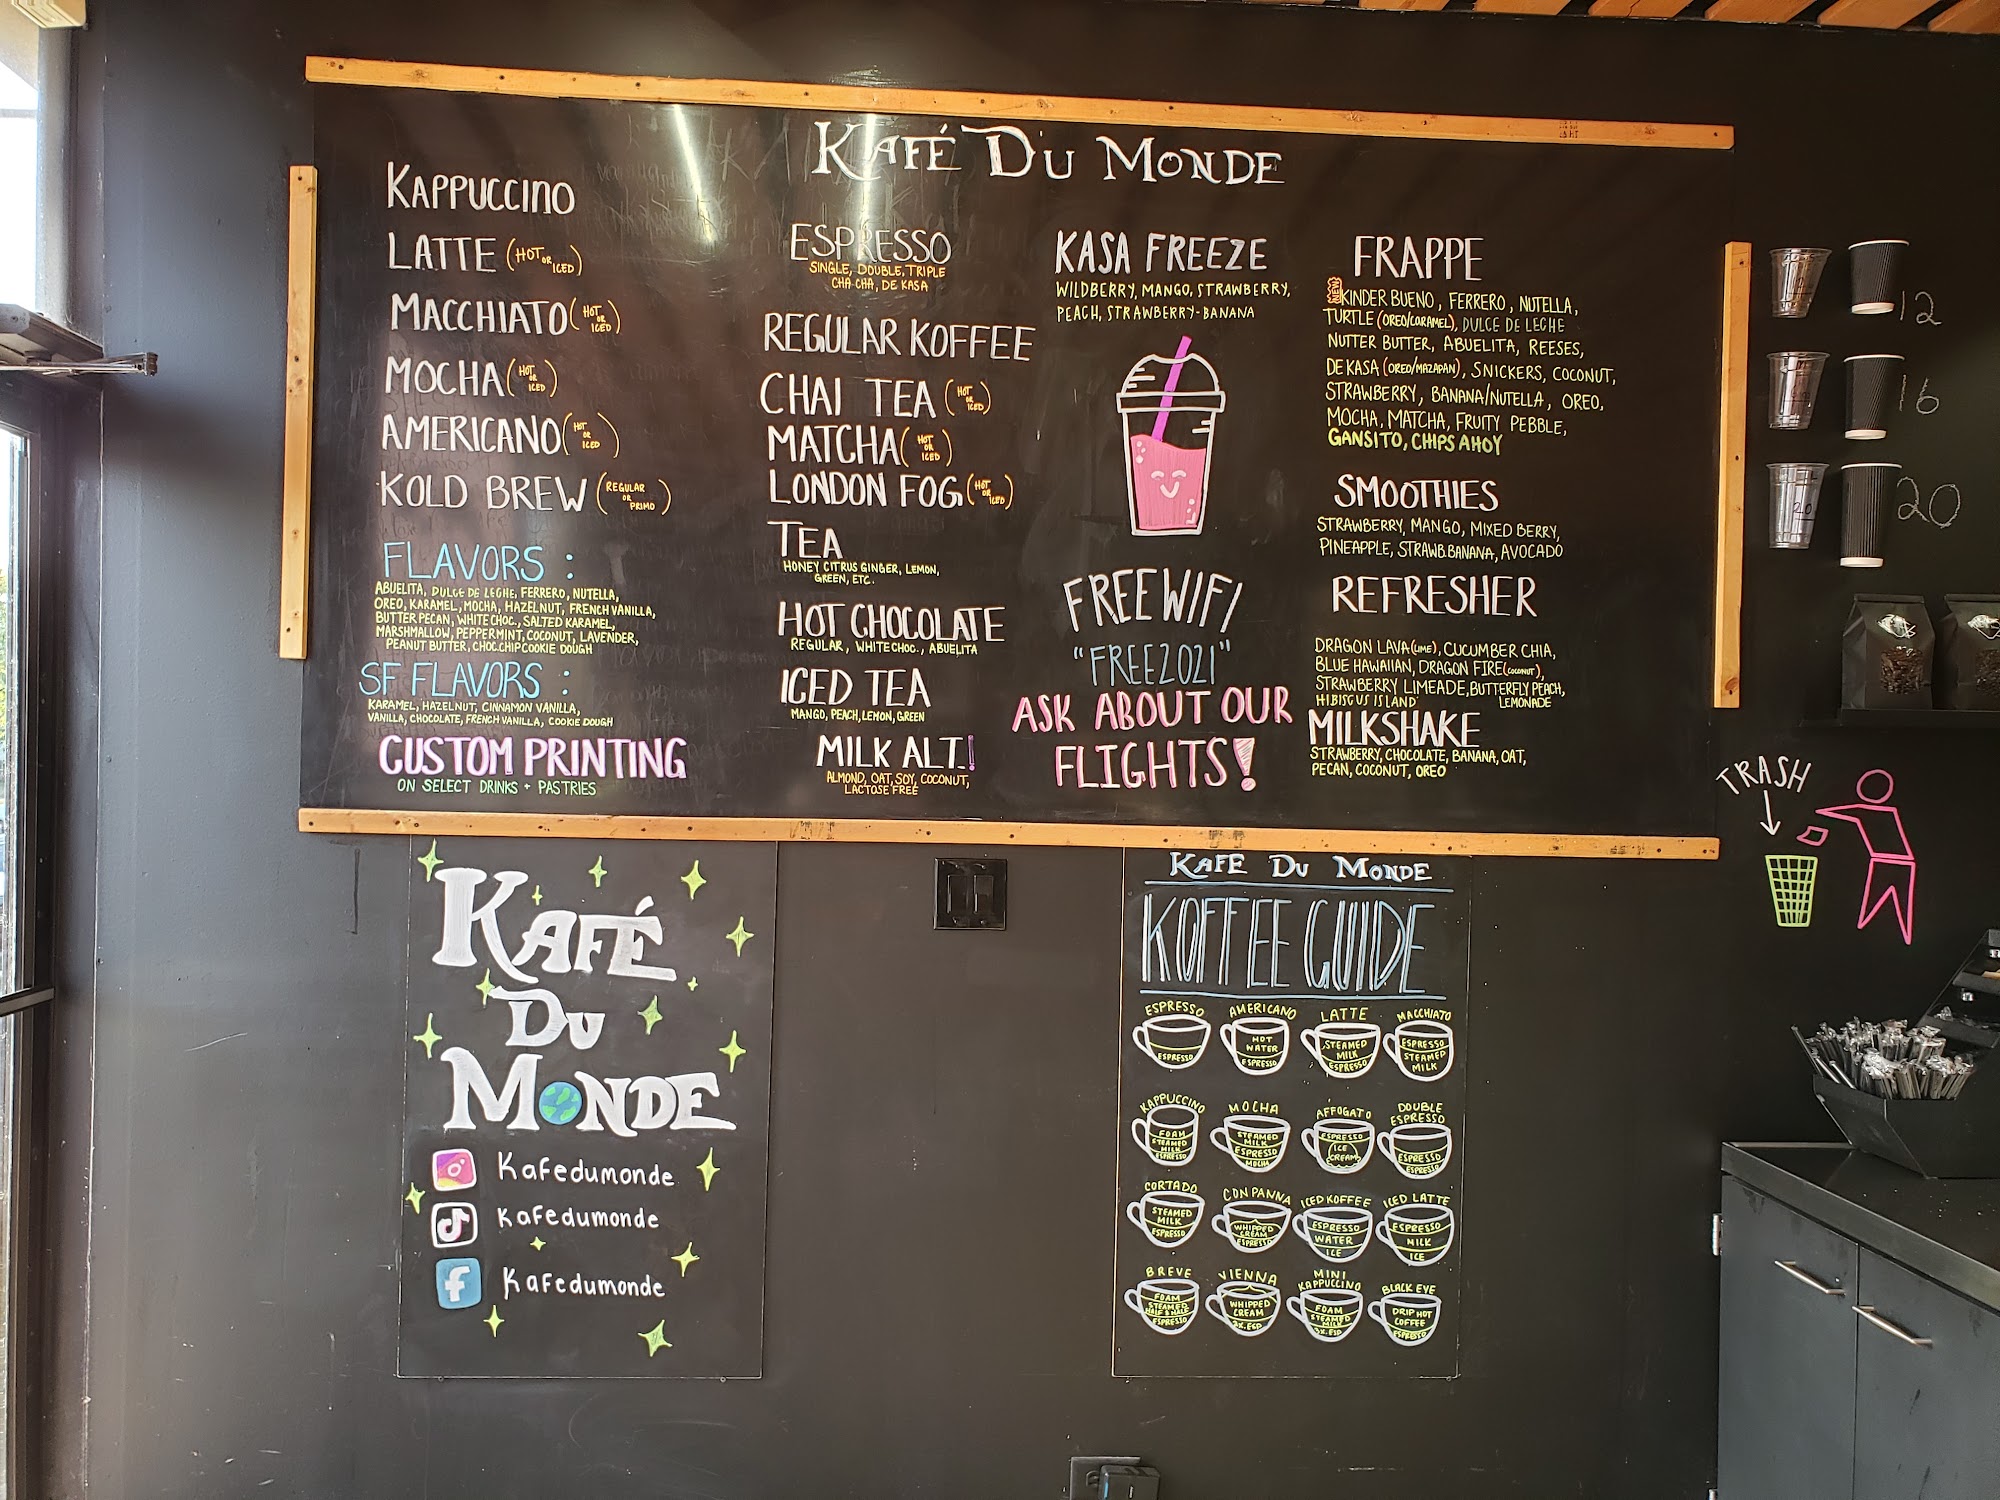 KAFÉ DU MONDE
KAPPUCCINO
LATTE (HOT OR ICED)
MACCHIATO (HOT OR ICED)
MOCHA (HOT OR ICED)
AMERICANO (HOT OR ICED)
KOLD BREW (REGULAR OR PRIMO)
FLAVORS :
ABUELITA, DULCE DE LECHE, FERRERO, NUTELLA,
OREO, KARAMEL, MOCHA, HAZELNUT, FRENCH VANILLA,
BUTTER PECAN, WHITE CHOC., SALTED KARAMEL,
MARSHMALLOW, PEPPERMINT, COCONUT, LAVENDER,
PEANUT BUTTER, CHOC.CHIP COOKIE DOUGH
SF FLAVORS :
KARAMEL, HAZELNUT, CINNAMON VANILLA,
VANILLA, CHOCOLATE, FRENCH VANILLA, COOKIE DOUGH
CUSTOM PRINTING
ON SELECT DRINKS + PASTRIES
ESPRESSO
SINGLE, DOUBLE, TRIPLE
CHA CHA, DE KASA
REGULAR KOFFEE
CHAI TEA (HOT OR ICED)
MATCHA (HOT OR ICED)
LONDON FOG (HOT OR ICED)
TEA
HONEY CITRUS GINGER, LEMON,
GREEN, ETC.
HOT CHOCOLATE
REGULAR, WHITE CHOC., ABUELITA
ICED TEA
MANGO, PEACH, LEMON, GREEN
MILK ALT.!
ALMOND, OAT, SOY, COCONUT,
LACTOSE FREE
KASA FREEZE
WILDBERRY, MANGO, STRAWBERRY,
PEACH, STRAWBERRY-BANANA
FREE WIFI
"FREE2021"
ASK ABOUT OUR
FLIGHTS!
FRAPPE
NEW KINDER BUENO, FERRERO, NUTELLA,
TURTLE (OREO/CARAMEL), DULCE DE LECHE
NUTTER BUTTER, ABUELITA, REESES,
DE KASA (OREO/MAZAPAN), SNICKERS, COCONUT,
STRAWBERRY, BANANA/NUTELLA, OREO,
MOCHA, MATCHA, FRUITY PEBBLE,
GANSITO, CHIPS AHOY
SMOOTHIES
STRAWBERRY, MANGO, MIXED BERRY,
PINEAPPLE, STRAWB.BANANA, AVOCADO
REFRESHER
DRAGON LAVA (LIME), CUCUMBER CHIA,
BLUE HAWAIIAN, DRAGON FIRE (COCONUT),
STRAWBERRY LIMEADE, BUTTERFLY PEACH LEMONADE
HIBISCUS ISLAND
MILKSHAKE
STRAWBERRY, CHOCOLATE, BANANA, OAT,
PECAN, COCONUT, OREO
12
16
20
TRASH
KAFÉ
DU
MONDE
Kafedumonde
Kafedumonde
Kafedumonde
KAFE DU MONDE
KOFFEE GUIDE
ESPRESSO
ESPRESSO
AMERICANO
HOT
WATER
ESPRESSO
LATTE
STEAMED
MILK
ESPRESSO
MACCHIATO
ESPRESSO
STEAMED
MILK
KAPPUCCINO
FOAM
STEAMED
MILK
ESPRESSO
MOCHA
STEAMED
MILK
ESPRESSO
MOCHA
AFFOGATO
ESPRESSO
ICE
CREAM
DOUBLE
ESPRESSO
ESPRESSO
ESPRESSO
CORTADO
STEAMED
MILK
ESPRESSO
CON PANNA
WHIPPED
CREAM
ESPRESSO
ICED KOFFEE
ESPRESSO
WATER
ICE
ICED LATTE
ESPRESSO
MILK
ICE
BREVE
FOAM
STEAMED
HALF & HALF
ESPRESSO
VIENNA
WHIPPED
CREAM
2X. ESP
MINI
KAPPUCCINO
FOAM
STEAMED
MILK
3X. ESP
BLACK EYE
DRIP HOT
COFFEE
ESPRESSO